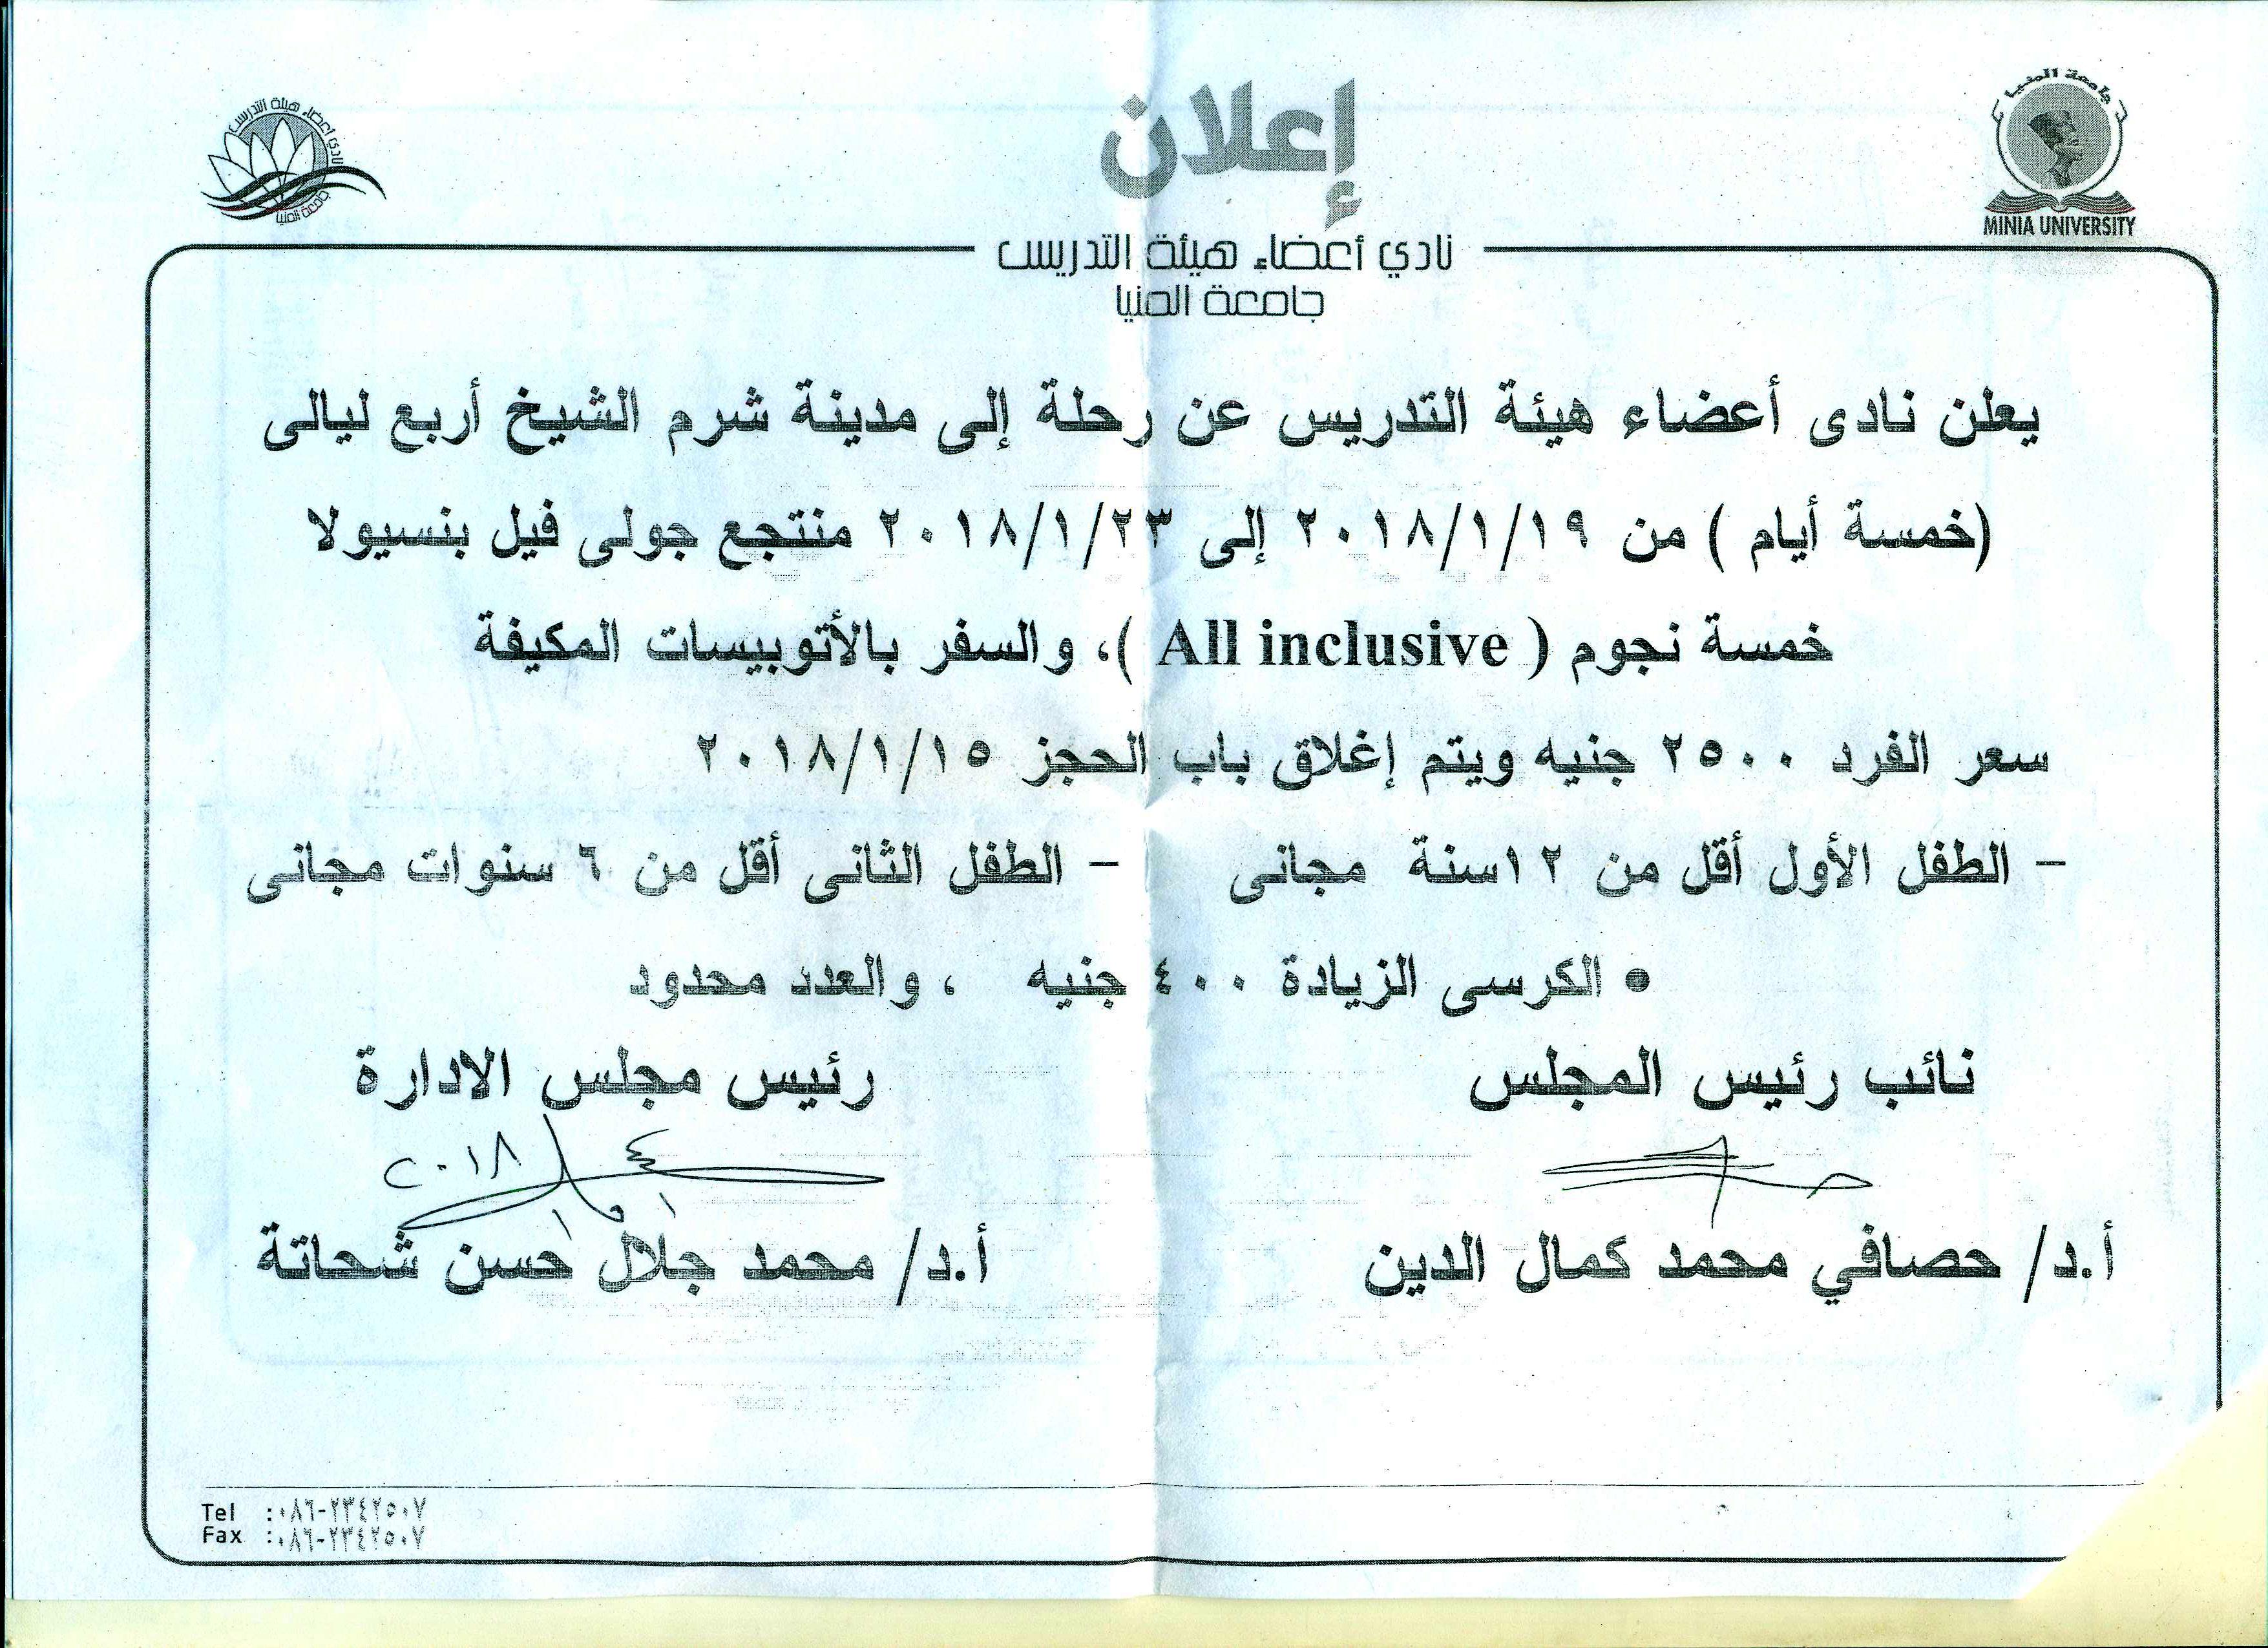 جامعة المنيا
MINIA UNIVERSITY
إعلان
نادي أعضاء هيئة التدريس
جامعة المنيا
نادي أعضاء هيئة التدريس
جامعة المنيا
يعلن نادى أعضاء هيئة التدريس عن رحلة إلى مدينة شرم الشيخ أربع ليالى
(خمسة أيام ) من ٢٠١٨/١/١٩ إلى ٢٠١٨/١/٢٣ منتجع جولى فيل بنسيولا
خمسة نجوم ( All inclusive )، والسفر بالأتوبيسات المكيفة
سعر الفرد ٢٥٠٠ جنيه ويتم إغلاق باب الحجز ٢٠١٨/١/١٥
- الطفل الأول أقل من ١٢سنة مجانى - الطفل الثانى أقل من ٦ سنوات مجانى
• الكرسى الزيادة ٤٠٠ جنيه ، والعدد محدود
نائب رئيس المجلس رئيس مجلس الادارة
٢٠١٨
أ.د/ حصافي محمد كمال الدين أ.د/ محمد جلال حسن شحاتة
Tel :٠٨٦-٢٣٤٢٥٠٧
Fax :٠٨٦-٢٣٤٢٥٠٧